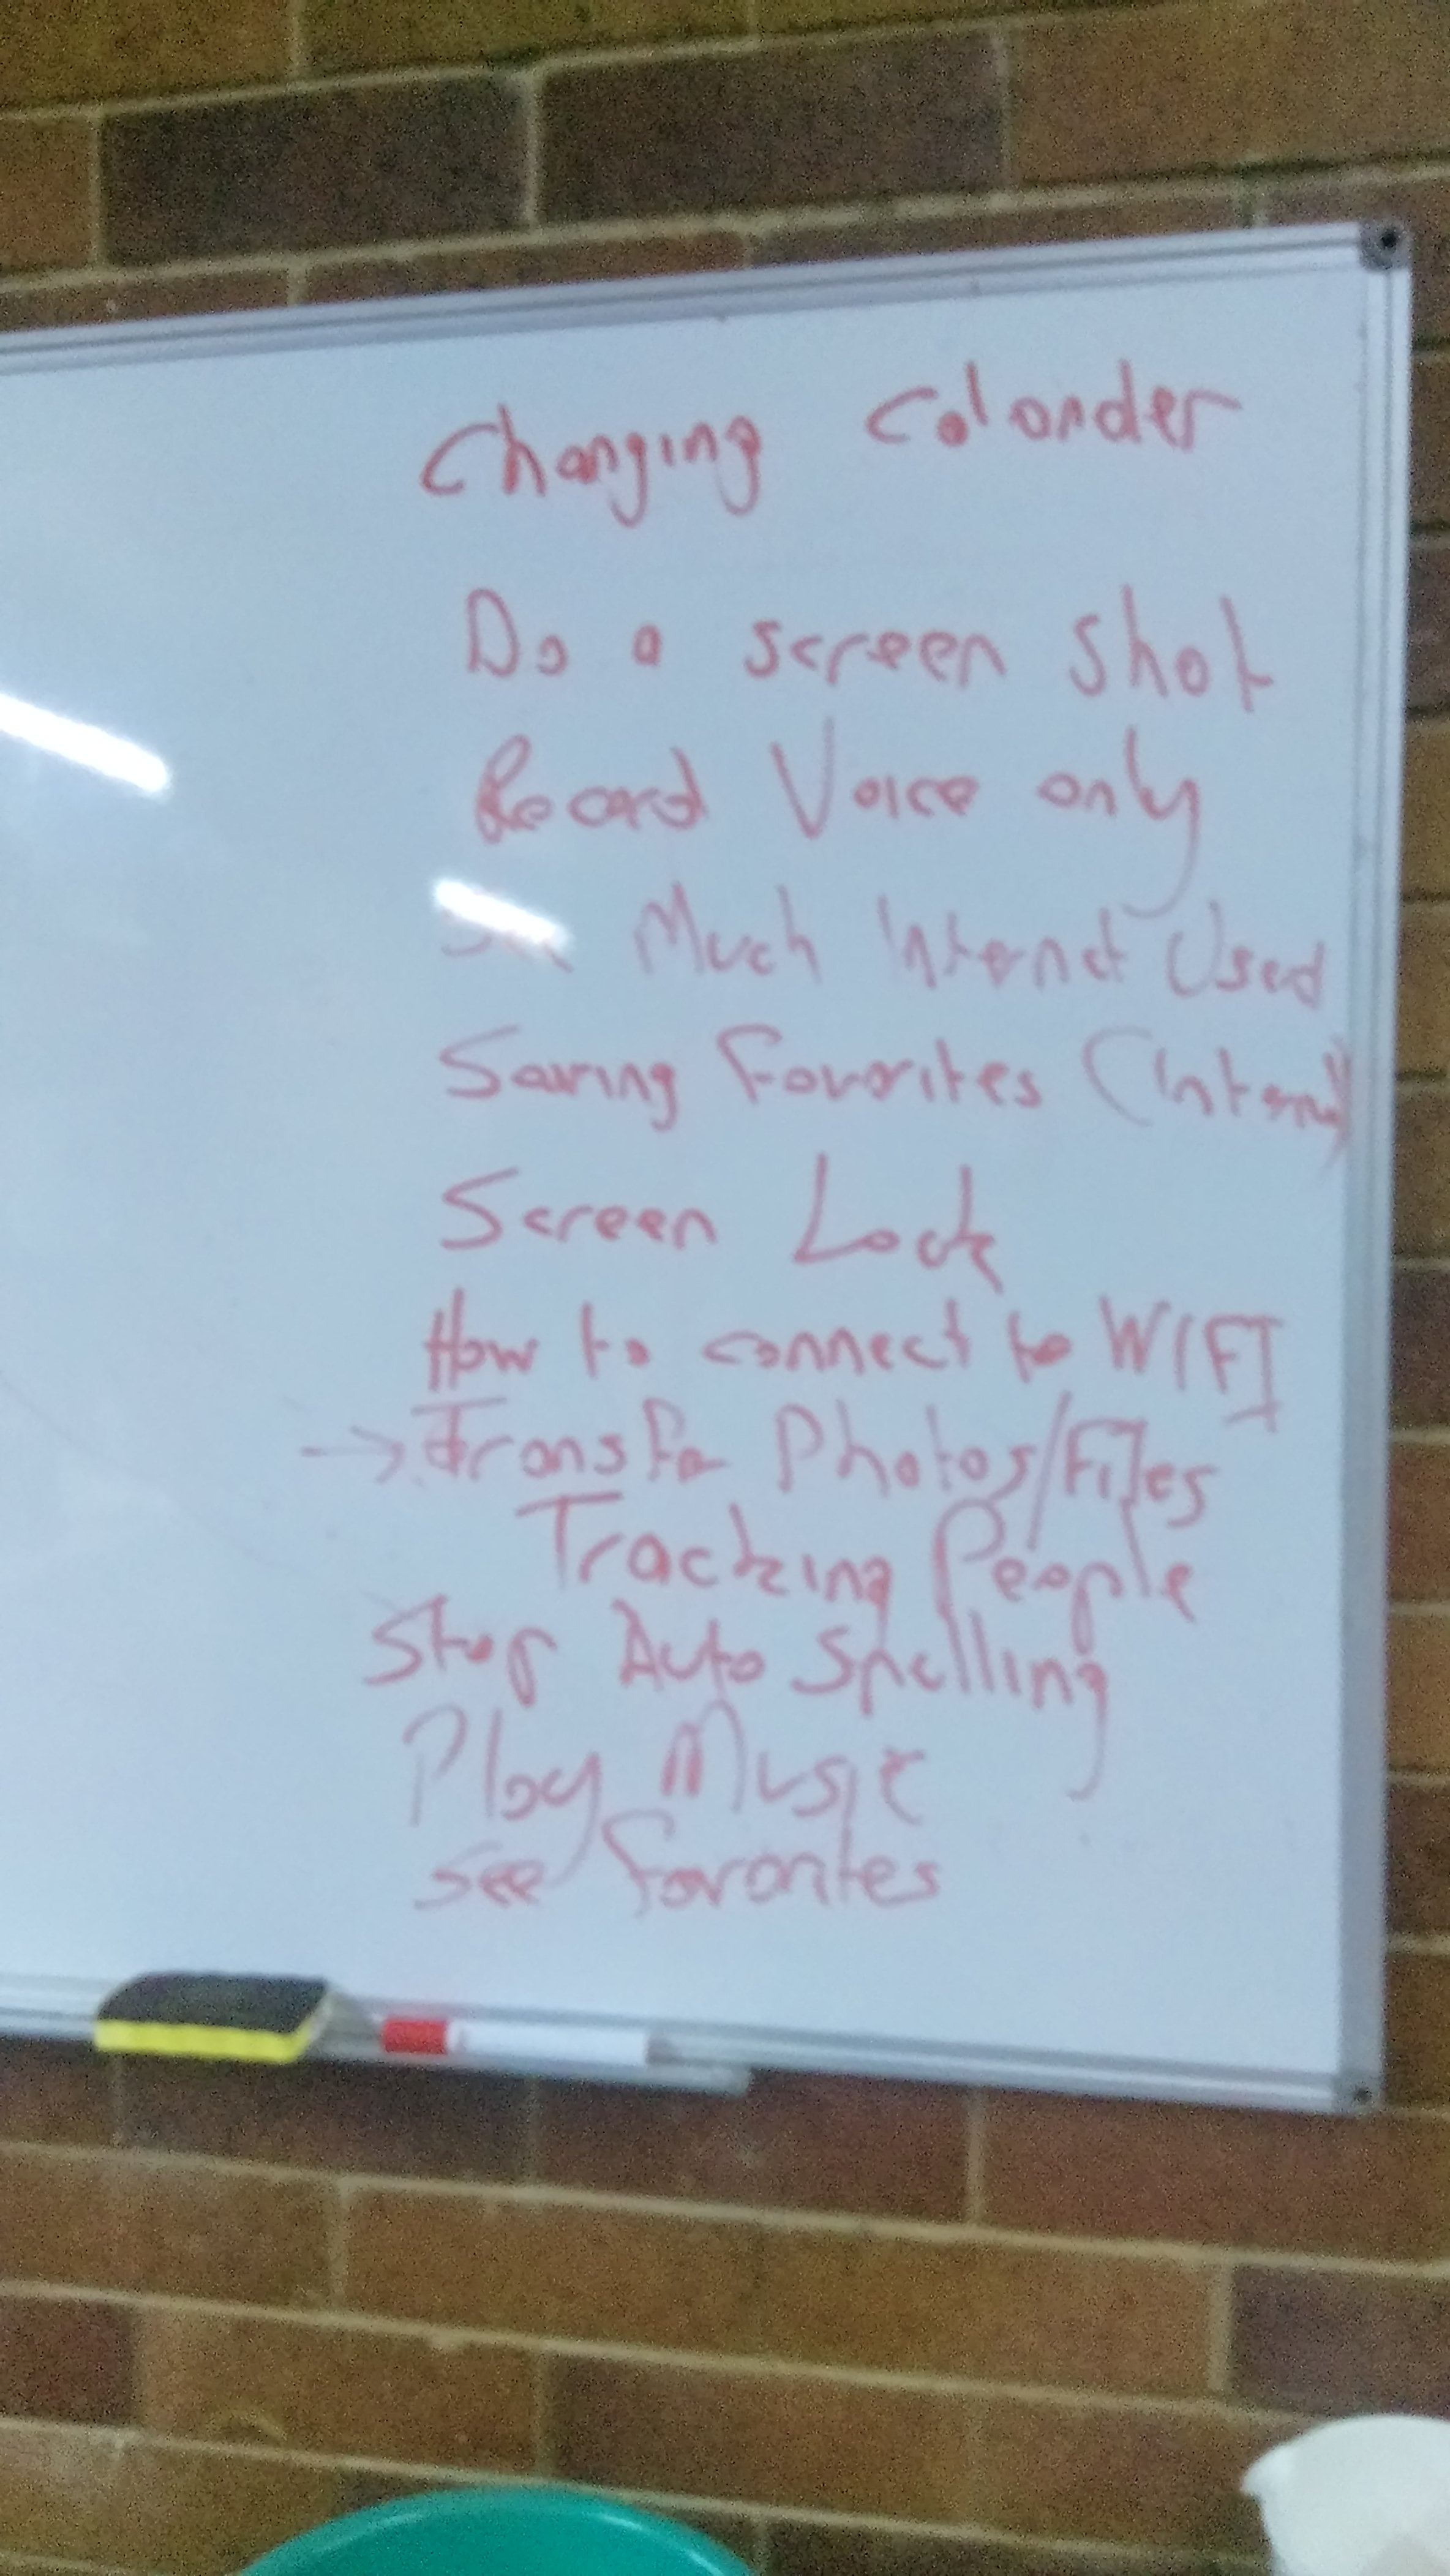 Changing Colander
Do a screen shot
Record Voice only
Much Internet Used
Saving Favorites (Internet)
Screen Lock
How to connect to WIFI
→ Transfer Photos/Files
Tracking People
Stop Auto Spelling
Play Music
see favorites